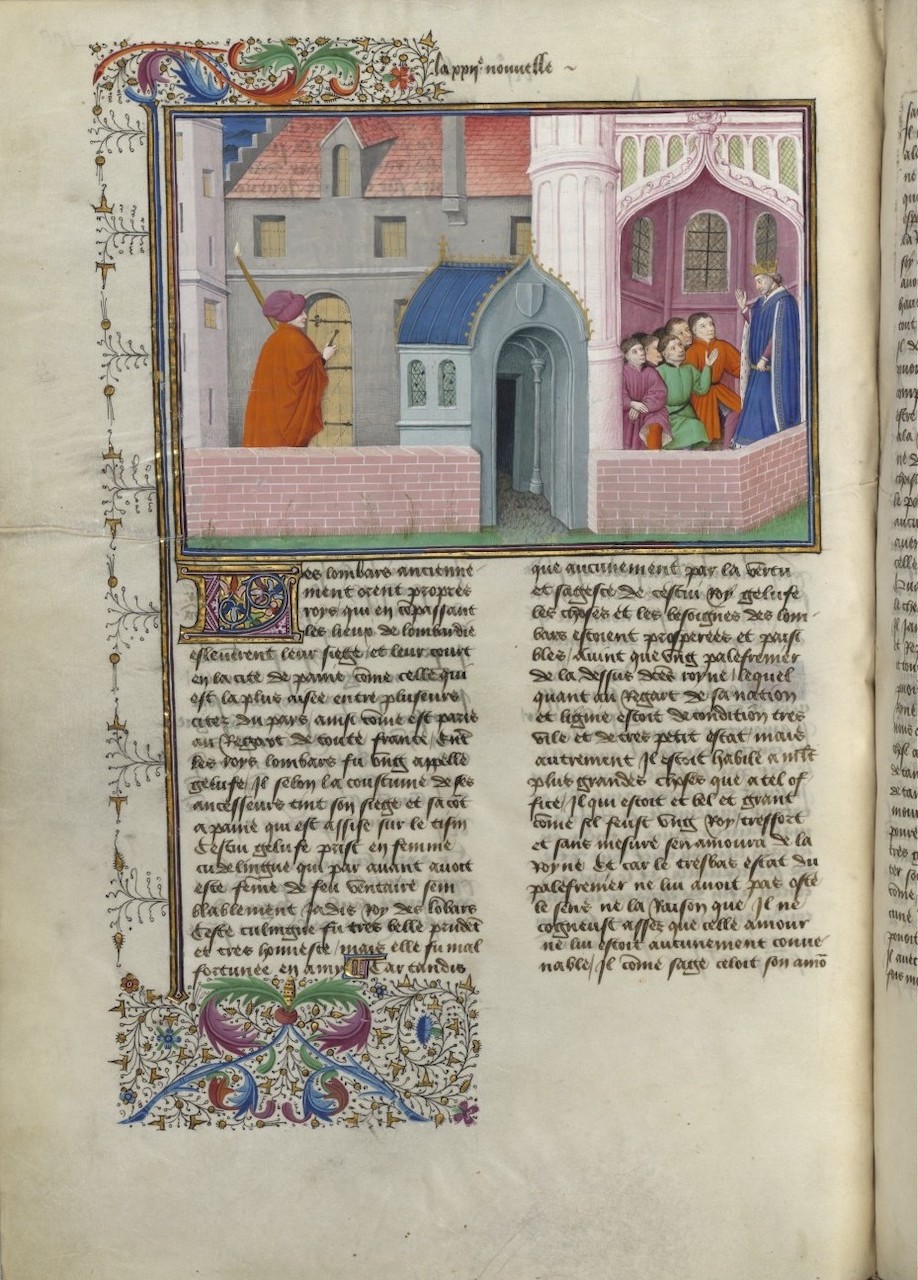 la xxii.e nouuelle ~
Les lombars ancienne
ment orent propres
roys qui en cõpassant
les lieux de lombardie
esleuerent leur siege et leur court
en la cite de pauie cõme celle qui
est la plus aisee entre plusieurs
citez du pais ainsi cõme est paris
au Regart de toute france / Entre
les roys lombars fu vng appelle
gelufe / Il selon la coustume de ses
ancesseurs tint son siege et sa cõt
a pauie qui est assise sur le tisin
Cestui gelufe prist en femme
cudelingue qui par auant auoit
este feme de feu ventaire sem
blablement Jadis roy des lõbars
Ceste culingue fu tres belle prudẽt
et tres honneste / mais elle fu mal
fortunee en amy Car tandis
que aucunement par la vertu
et sagesse de cestui roy gelufe
les choses et les besoignes des lom-
bars estoient prosperees et paisi
bles / auint que vng palefrenier
de la dessus dcẽ royne / lequel
quant au Regart de sa nation
et ligne estoit de condition tres
vile et de tres petit estat / mais
autrement Il estoit habile a mlt̃
plus grandes choses que a tel of
fice / Il qui estoit et bel et grant
cõme sil feust vng Roy / tressort
et sans mesure sen amoura de la
royne Et car le tresbas estat du
palefrenier ne lui auoit pas oste
le sens ne la Raison que Il ne
cogneust assez que celle amour
ne lui estoit aucunement conue-
nable / Il cõme sage celoit son amõ